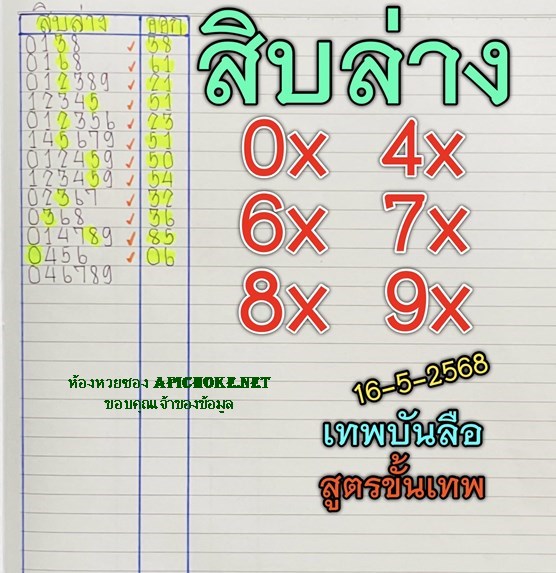 สิบล่าง ออก
0138 ✓ 38
0168 ✓ 61
012389 ✓ 21
12345 ✓ 51
012356 ✓ 23
145679 ✓ 51
012459 ✓ 50
123459 ✓ 54
02367 ✓ 32
0368 ✓ 36
014789 ✓ 85
0456 ✓ 06
046789
สิบล่าง
0x 4x
6x 7x
8x 9x
16-5-2568
เทพบันลือ
สูตรขั้นเทพ
ห้องหวยซอง APICHOKE.NET
ขอบคุณเจ้าของข้อมูล